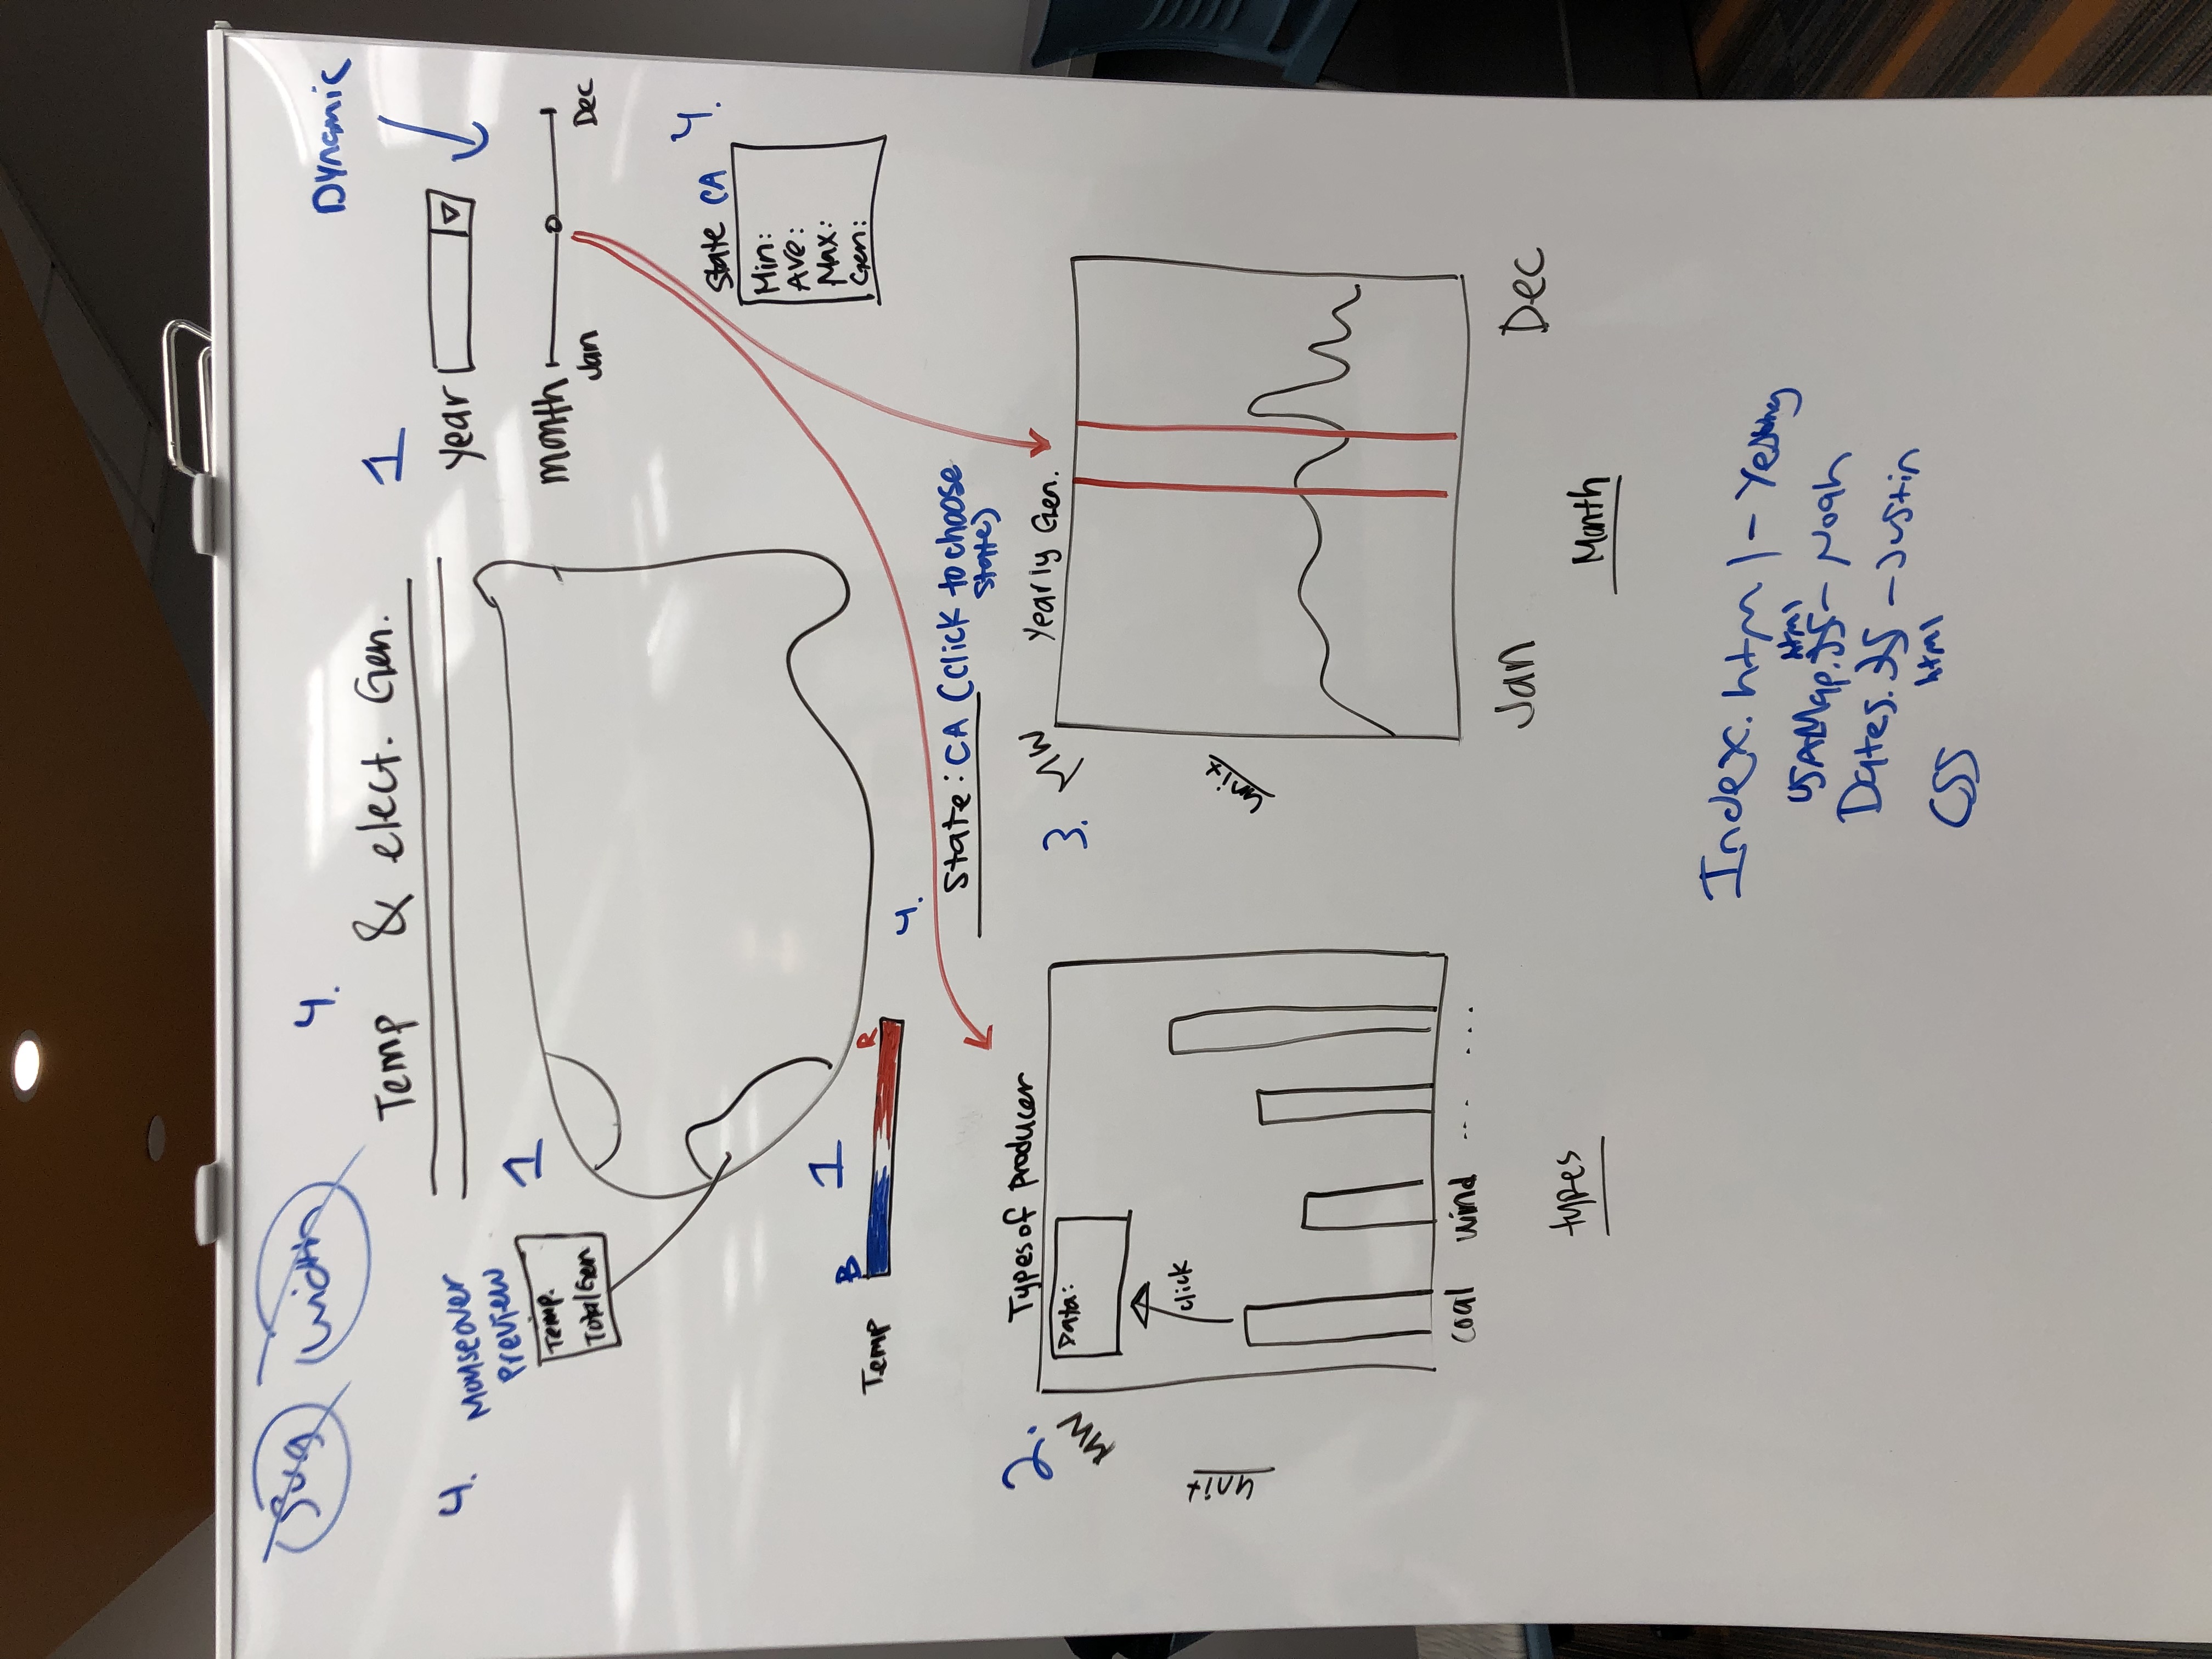 svg width
4.
Dynamic
Temp & elect. Gen.
1
year
4.
Mouseover
Preview
1
Temp.
Total Gen
month
Jan
Dec
4.
State CA
Min:
Ave:
Max:
Gen:
1
B
R
Temp
4.
State: CA (Click to choose
state)
2.
Types of producer
MW
Data:
click
unit
coal wind ... ...
types
3.
MW
Yearly Gen.
unit
Jan
Dec
Month
Index.html -
html
USAMap.JS - Noah
Dates.JS - Justin
html
CSS